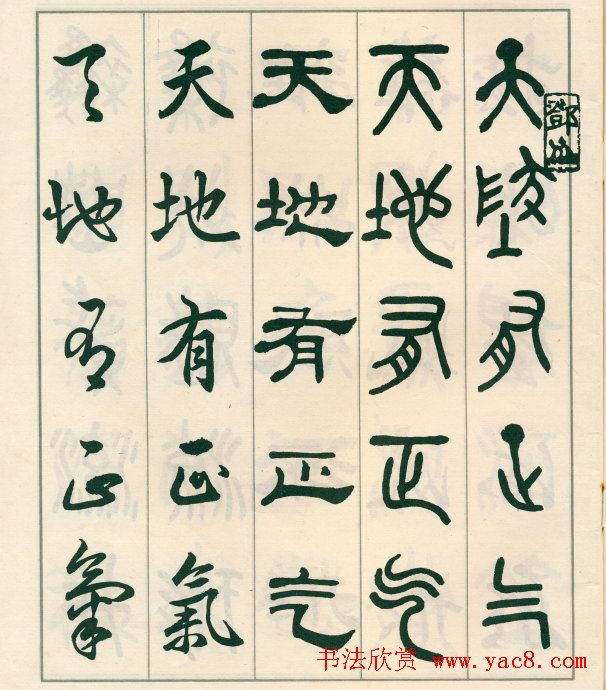 天地有正氣
天地有正气
天地有正气
天地有正氣
天地有正氣
书法欣赏 www.yac8.com